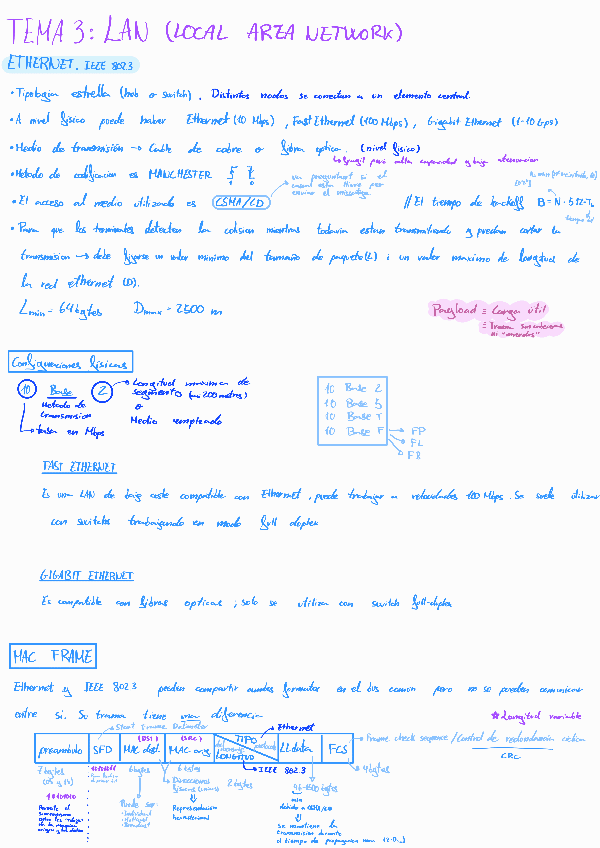 TEMA 3: LAN (LOCAL AREA NETWORK)
ETHERNET. IEEE 802.3
• Tipologia estrella (hub o switch). Distintos nodos se conectan a un elemento central.
• A nivel fisico puede haber Ethernet (10 Mbps), Fast Ethernet (100 Mbps), Gigabit Ethernet (1-10 Gbps)
• Medio de transmisión → Cable de cobre o fibra optica. (nivel fisico)
• Metodo de codificacion es MANCHESTER
1 0
• El acceso al medio utilizado es CSMA/CD
va preguntant si el
canal esta lliure per
enviar el missatge
// El tiempo de backoff B = N · 512 · Tb
• Para que los terminales detecten la colision mientras todavia estan transmitiendo y puedan cortar la
transmision → debe fijarse un valor minimo del tamaño de paquete (L) i un valor maximo de longitud de
la red ethernet (D).
Lmin = 64 bytes Dmax = 2500 m
Payload = Carga útil
Configuraciones fisicas
10 Base 2
→ Longitud maxima de
segmento (en 200 metros)
o
Medio empleado
Metodo de
transmision
→ tasa en Mbps
10 Base 2
10 Base 5
10 Base T
10 Base F
→ FP
→ FL
→ FB
FAST ETHERNET
Es una LAN de bajo coste compatible con Ethernet, puede trabajar a velocidades 100 Mbps. Se suele utilizar
con switches trabajando en modo full duplex
GIGABIT ETHERNET
Es compatible con fibras opticas, solo se utiliza con switch full-duplex
MAC FRAME
Ethernet y IEEE 802.3 pueden compartir ambos formatos en el bus comun pero no se pueden comunicar
entre si. Su trama tiene una diferencia
★ Longitud variable
Start Frame Delimiter
(DST) (SRC)
→ Ethernet
preambulo SFD MAC dest. MAC orig TIPO LONGITUD LLdata FCS
→ Frame check sequence / Control de redundancia ciclica
CRC
→ IEEE 802.3
7 bytes
6 bytes
6 bytes
2 bytes
46-1500 bytes
4 bytes
10101010
Puede ser:
• Individual
• Multicast
• Broadcast
Direcciones
fisicas
Representacion
hexadecimal
min
debido a CSMA/CD
Se mantiene la
transmision durante
el tiempo de propagacion